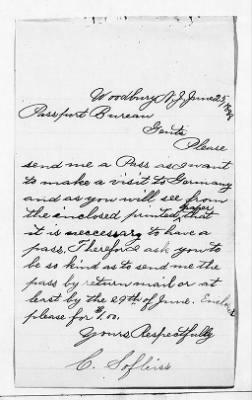 Woodbury N.J. June 25
Passport Bureau
Gents
Please
send me a Pass as I want
to make a visit to Germany
and as you will see from
the inclosed printed paper that
it is neccessary to have a
pass. Therefore ask you to
be so kind as to send me the
pass by return mail or at
lerst by the 29th of June.
please for $1.00.
Yours Respectfully
C.